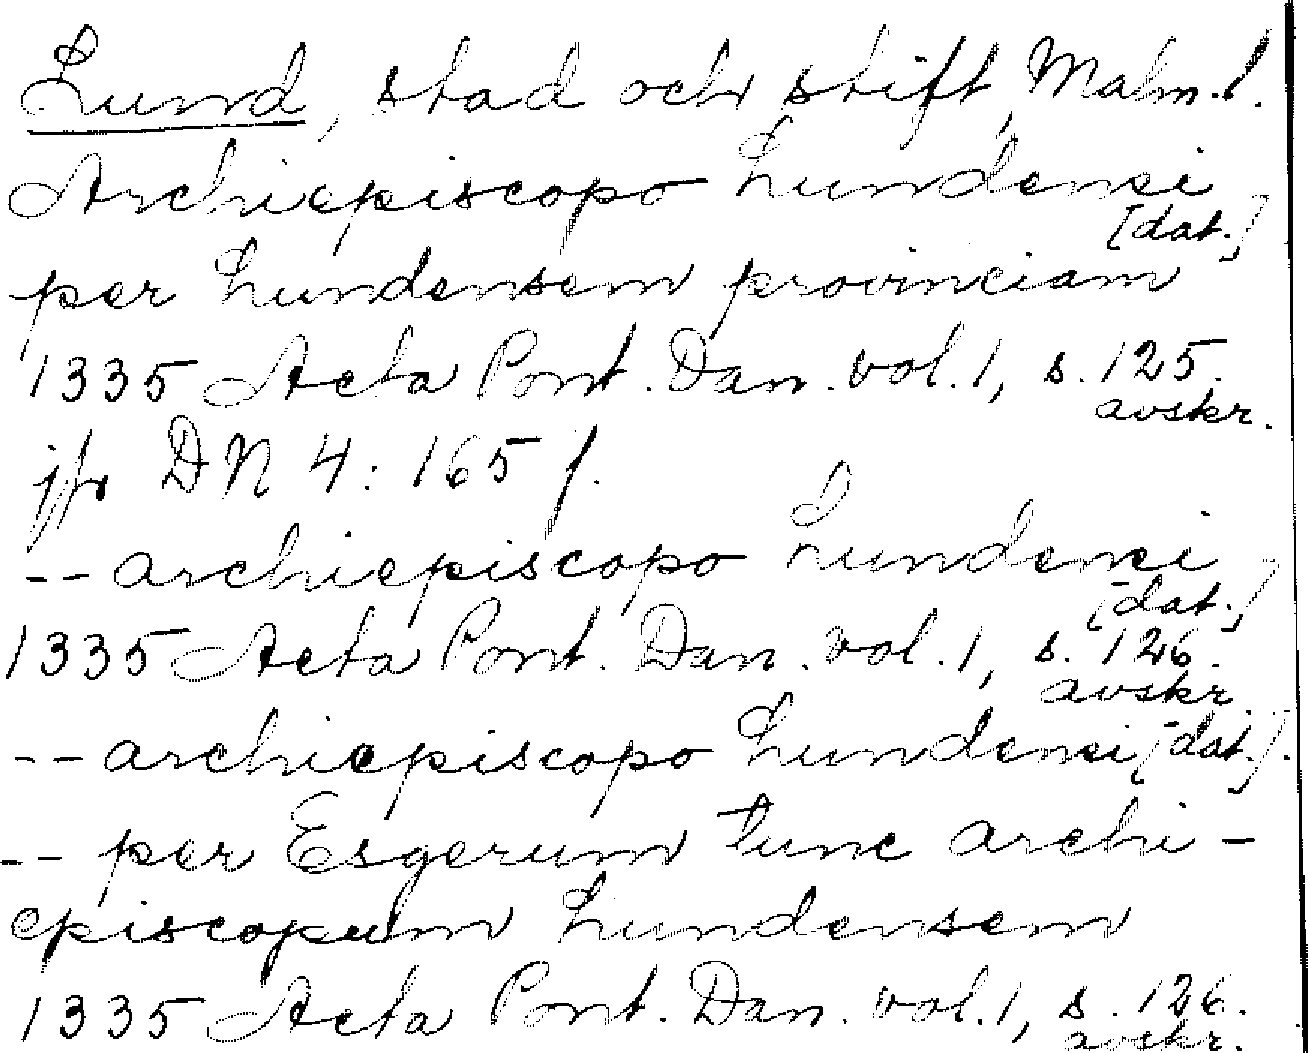 Lund, stad och stift, Malm.l.
Archiepiscopo Lundensi
[dat.]
per Lundensem provinciam
1335 Acta Pont. Dan. vol. 1, s. 125.
avskr.
jfr DN 4: 165 f.
-- archiepiscopo Lundensi
[dat.]
1335 Acta Pont. Dan. vol. 1, s. 126.
avskr.
-- archiepiscopo Lundensi [dat.].
-- per Esgerum tunc archi-
episcopum Lundensem
1335 Acta Pont. Dan. vol. 1, s. 126.
avskr.